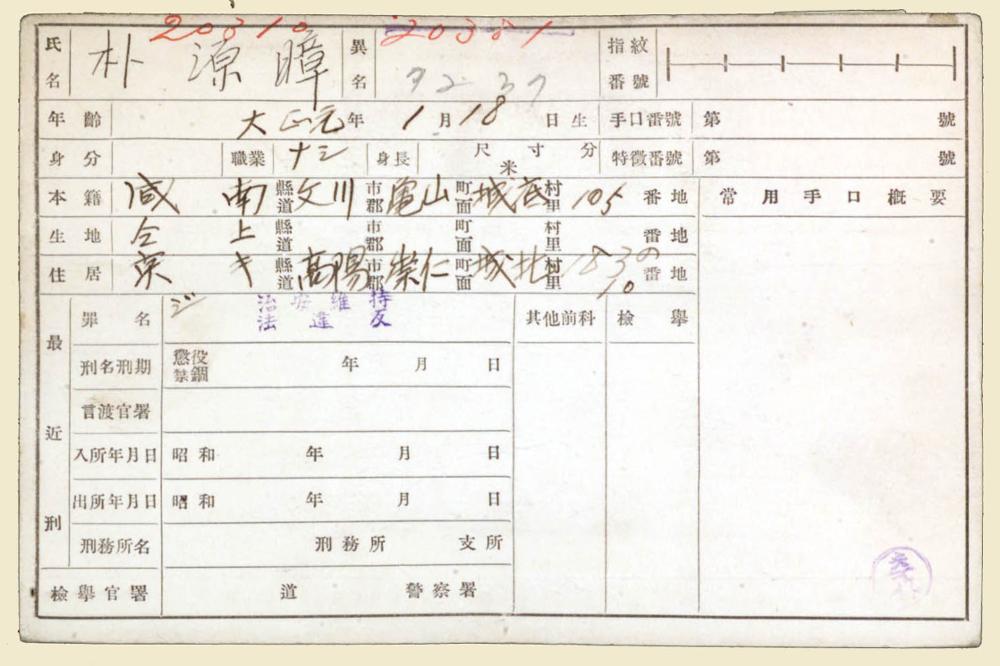 20310 20381
氏名 朴源暲 異名 指紋番號
7237
年齡 大正元年1月18日生 手口番號 第 號
身分 職業 ナシ 身長 尺寸分 米 特徵番號 第 號
本籍 咸南縣道文川市郡龜山町面城底村里105番地 常用手口槪要
生地 仝上縣道 市郡 町面 村里 番地
住居 京キ縣道高陽市郡崇仁町面城北村里183の10番地
最近刑 罪名 治安維持法違反 其他前科 檢擧
刑名刑期 懲役 禁錮 年月日
言渡官署
入所年月日 昭和 年月日
出所年月日 昭和 年月日
刑務所名 刑務所 支所
檢擧官署 道 警察署